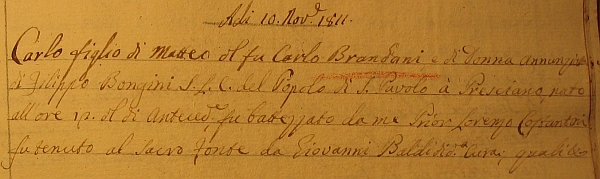 Adì 10. Nov.e 1811.
Carlo figlio di Matteo del fu Carlo Brandani e di Donna Annunzia
di Filippo Bongini S.L.C. del Popolo di S. Pavolo à Presciano, nato
all'ore 12. del dì Anteced. fu battezzato da me Prior Lorenzo Costantini
fu tenuto al Sacro Fonte da Giovanni Baldi di q.a Cura, quali